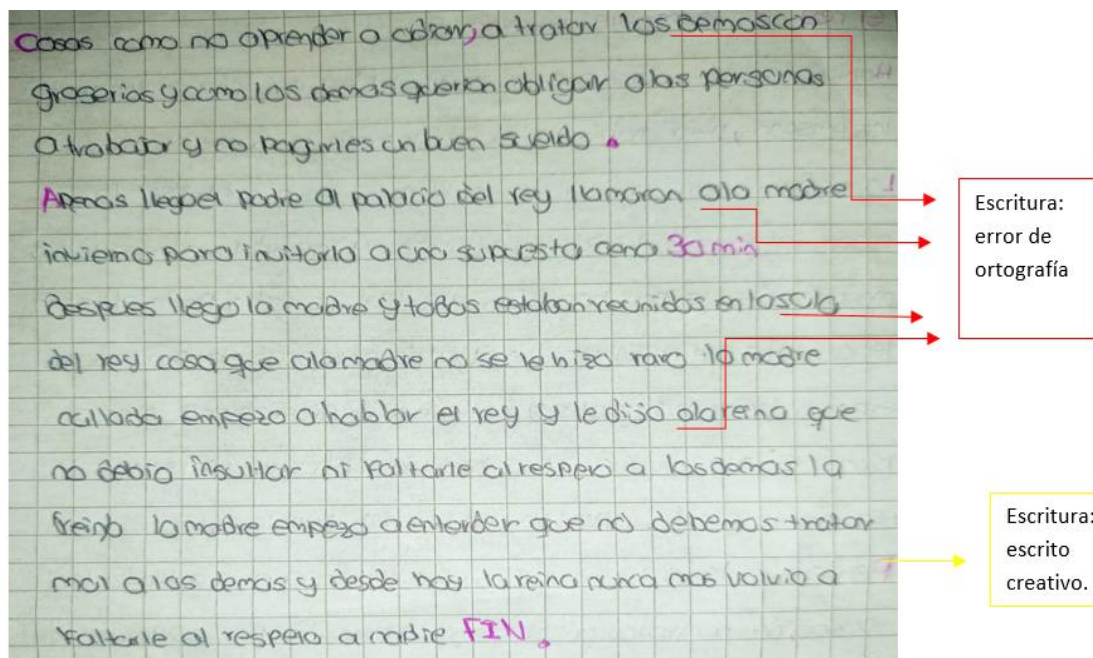 Cosas como no aprender a cobrar, a tratar los demascon
groserias y como los demas querian obligar alas personas
a trabajar y no pagarles un buen sueldo.
Apenas llegoel padre al palacio del rey llamaron ala madre
invierno para invitarla a una supuesta cena 30 min
despues llego la madre y todos estaban reunidos en lasala
del rey cosa que ala madre no se le hizo raro la madre
callada empezo a hablar el rey y le dijo alareina que
no debia insultar ni faltarle al respeto a losdemas la
reina la madre empezo a entender que no debemos tratar
mal a los demas y desde hay la reina nunca mas volvio a
faltarle al respeto a nadie FIN.
Escritura:
error de
ortografía
Escritura:
escrito
creativo.